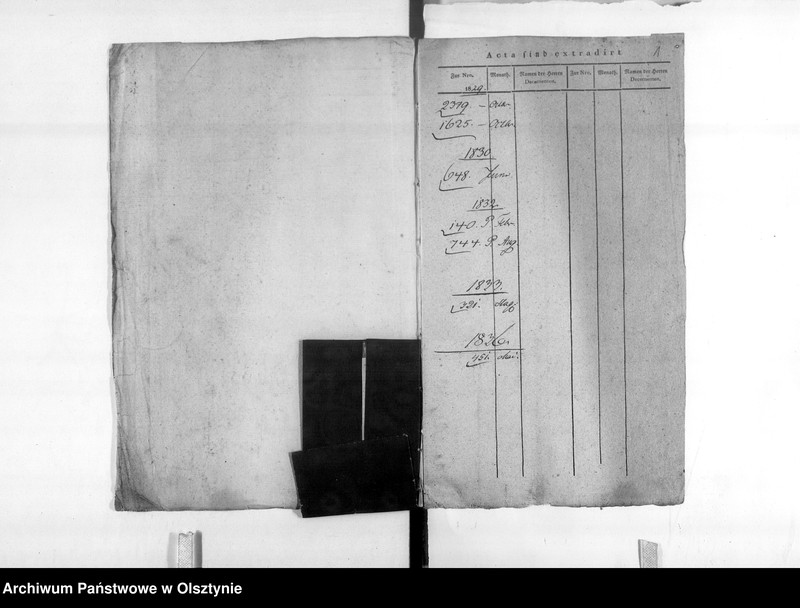 Acta sind extradirt
1
Zur Nro. Monath. Namen der Herren Decernenten. Zur Nro. Monath. Namen der Herren Decernenten.
1829.
2379. –
1625. –
1830.
648. Juni
1832
140. P. Febr.
744. P. Aug
1833.
331. May
1836.
451.
Archiwum Państwowe w Olsztynie